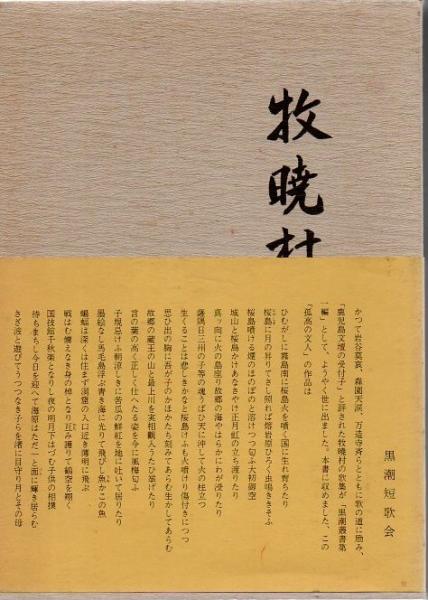 牧暁村
黒潮短歌会
かつて岩谷莫哀、森園天涙、万造寺斉らとともに歌の道に励み、
「鹿児島文壇の受付子」と評された牧暁村の歌集が「黒潮叢書第
一編」として、ようやく世に出ました。本書に収めました、この
『孤高の文人』の作品は
ひむがしに霧島南に桜島火を噴く国に生れ育ちたり
桜島に月の昇りてさし照れば熔岩原ひろく虫鳴ききそふ
桜島噴ける煙のほのぼのと溶けつつ匂ふ大初御空
城山と桜島かけあなさやけ正月虹の立ち渡りたり
真ッ向に火の島座り故郷の海やはらかにわが浸りたり
薩隅日三州の子等の魂うばひ天に沖して火の柱立つ
生くることは悲しきかなと桜島けふも火噴けり傷付きにつつ
思ひ出の胸に吾が子のかほかたち刻みてあらむ生かしてあらむ
故郷の蔵王の山と最上川を実相観入うたひ遂げたり
言の葉の高く正しく仕へたる姿を今に風梅匂ふ
子規忌けふ朝涼しきに苦瓜の鮮紅を地に吐いて居りたり
墨絵なし馬毛島浮ぶ青き海に光りて飛びし魚かこの魚
蝙蝠は深くは住まず洞窟の入口近き薄明に飛ぶ
戦はむ備えなき身の棹となり互み護りて鶴空を翔く
国技館千秋楽となりし夜の明月下はづむ子供の相撲
待ちまちし今日を迎へて海原はただ一と面に輝き居らむ
さざ波と遊びてうつつなきそらを渚に目守り月とその母